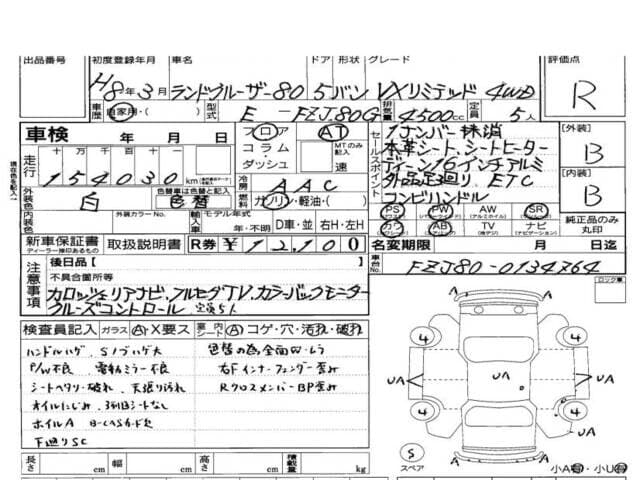 出品番号 初度登録年月 車名 ドア 形状 グレード 評価点
H8年3月 ランドクルーザー80 5 バン VXリミテッド 4WD R
車歴 自家用・( ) 型式 E-FZJ80G 排気量 4500cc 定員 5人
車検 年 月 日 フロア AT 1ナンバー抹消 [外装]
走行 十万 万 千 百 十 コラム MTのみ記入 本革シート、シートヒーター B
154030 km ダッシュ 速 16インチアルミ
外装色 白 色替車は色替と記入 色替 冷房 AAC ETC [内装]
内装色 外装カラーNo. 燃料 ガソリン・軽油・( ) コンビハンドル B
輸入車 モデル年式 年・不明 D車・並 右H・左H PS PW AW SR 純正品のみ丸印
カワ AB TV ナビ
新車保証書 取扱説明書 R券 ¥12,100 名変期限 月 日迄
ディーラー捺印あるもの
車台No. FZJ80-0134764
注意事項 後日品[ ]
不具合箇所等
カロッツェリアナビ、フルセグTV、カラーバックモニター
クルーズコントロール
ロック車
検査員記入 ガラス A・X要ス 車内シート A コゲ・穴・汚れ・破れ
ハンドルハゲ、Sノブハゲ大 色替の為全面W・ムラ
P/W不良 電格ミラー不良 右Fインナーフェンダー歪み
シートヘタリ・破れ、天張り汚れ RクロスメンバーBP歪み
オイルにじみ、3列目シートなし
ホイルA B-CASカード欠
下廻りSC
A A
4 4
UA UA UA
4 4
S
スペア
A A
長さ cm 幅 cm 高さ cm 積載量 kg
小A有・小U有